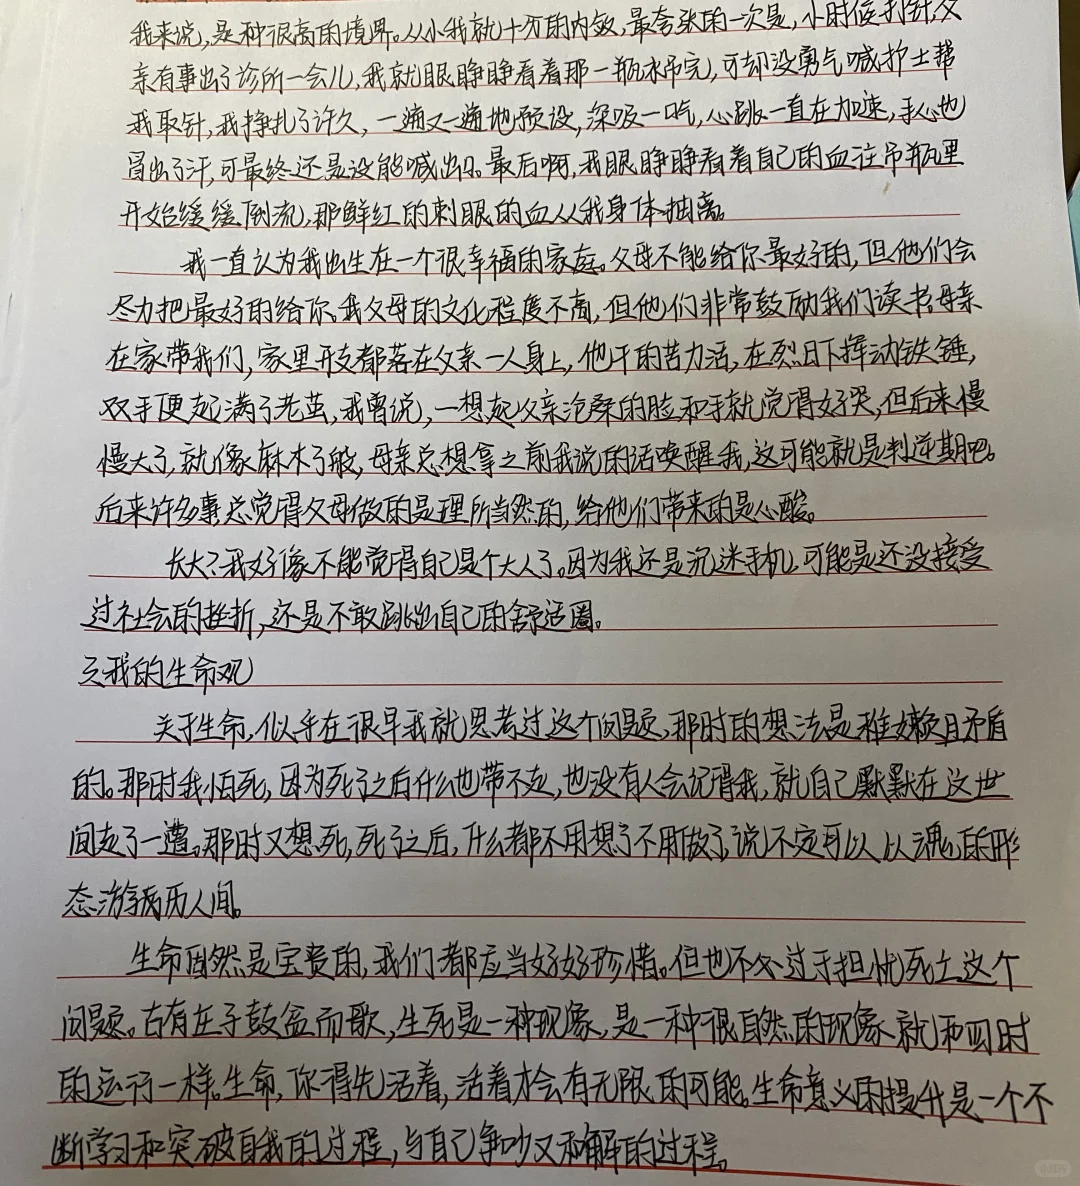 我来说,是种很高的境界。从小我就十分的内敛,最夸张的一次是,小时候打针,父
亲有事出了诊所一会儿,我就眼睁睁看着那一瓶水吊完,可却没勇气喊护士帮
我取针,我挣扎了许久,一遍又一遍地预设,深吸一口气,心跳一直在加速,手心也
冒出了汗,可最终还是没能喊出口。最后啊,我眼睁睁看着自己的血往吊瓶里
开始缓缓倒流,那鲜红的刺眼的血从我身体抽离。
我一直认为我出生在一个很幸福的家庭。父母不能给你最好的,但他们会
尽力把最好的给你。我父母的文化程度不高,但他们非常鼓励我们读书,母亲
在家带我们,家里开支都落在父亲一人身上,他干的苦力活,在烈日下挥动铁锤,
双手便起满了老茧,我曾说,一想起父亲沧桑的脸和手就觉得好哭,但后来慢
慢大了,就像麻木了般,母亲总想拿之前我说的话唤醒我,这可能就是判逆期吧。
后来许多事总觉得父母做的是理所当然的,给他们带来的是心酸。
长大?我好像不能觉得自己是个大人了。因为我还是沉迷手机,可能是还没接受
过社会的挫折,还是不敢跳出自己的舒适圈。
三我的生命观
关于生命,似乎在很早我就思考过这个问题,那时的想法是稚嫩且矛盾
的。那时我怕死,因为死了之后什么也带不走,也没有人会记得我,就自己默默在这世
间走了一遭。那时又想死,死了之后,什么都不用想了不用做了,说不定可以以魂的形
态游历人间。
生命固然是宝贵的,我们都应当好好珍惜。但也不必过于担忧死亡这个
问题。古有庄子鼓盆而歌,生死是一种现象,是一种很自然的现象,就和四时
的运行一样。生命,你得先活着,活着才会有无限的可能。生命意义的提升是一个不
断学习和突破自我的过程,与自己争吵又和解的过程。